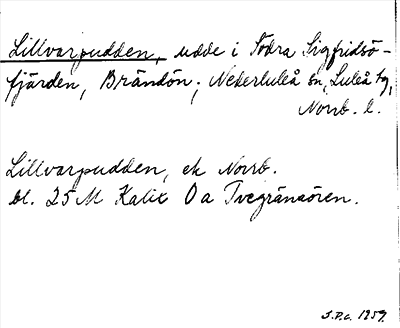 Lillvarpudden, udde i Södra Sigfridsö-
fjärden, Brändön; Nederluleå sn, Luleå tg,
Norrb. l.
Lillvarpudden, ek Norrb.
bl. 25 M Kalix O a Tvegränsören.
S.P.C. 1959.